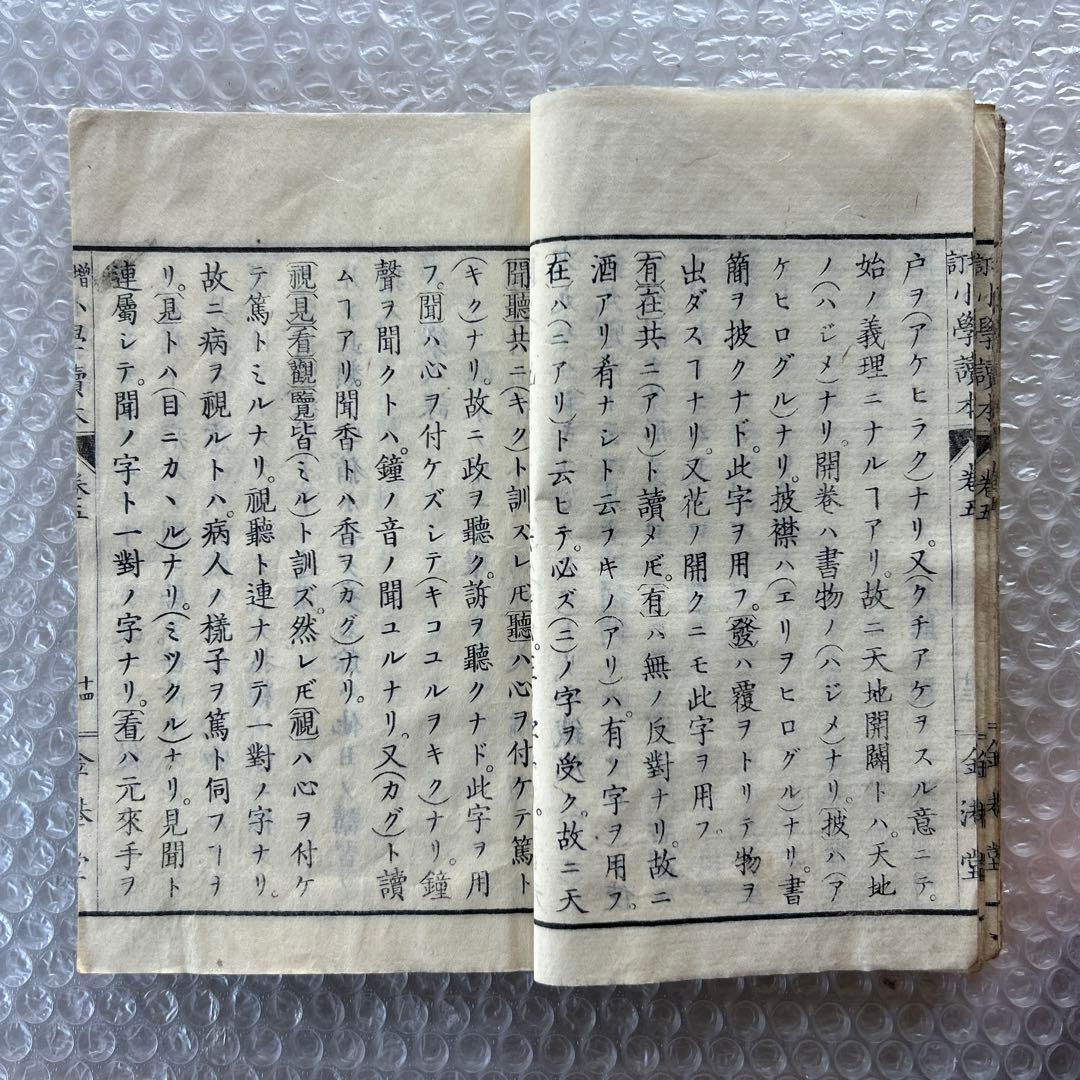 訂小學讀本 卷五 金港堂
戸ヲ(アケヒラク)ナリ。又(クチアケ)ヲスル意ニテ。
始ノ義理ニナルヿアリ。故ニ天地開闢トハ。天地
ノ(ハジメ)ナリ。開卷ハ書物ノ(ハジメ)ナリ。披ハ(ア
ケヒログル)ナリ。披襟ハ(エリヲヒログル)ナリ。書
簡ヲ披クナド。此字ヲ用フ。發ハ覆ヲトリテ物ヲ
出ダスヿナリ。又花ノ開クニモ此字ヲ用フ。
有在共ニ(アリ)ト讀メ𪜈。有ハ無ノ反對ナリ。故ニ
酒アリ肴ナシト云フキノ(アリ)ハ。有ノ字ヲ用フ。
在ハ(ニアリ)ト云ヒテ。必ズ(ニ)ノ字ヲ受ク。故ニ天
聞聽共ニ(キク)ト訓ズレ𪜈。聽ハ心ヲ付ケテ篤ト
(キク)ナリ。故ニ政ヲ聽ク。訴ヲ聽クナド。此字ヲ用
フ。聞ハ心ヲ付ケズシテ(キコユルヲキク)ナリ。鐘
聲ヲ聞クトハ。鐘ノ音ノ聞ユルナリ。又(カグ)ト讀
ムヿアリ。聞香トハ香ヲ(カグ)ナリ。
視見看觀覽皆(ミル)ト訓ズ。然レ𪜈。視ハ心ヲ付ケ
テ篤トミルナリ。視聽ト連ナリテ一對ノ字ナリ。
故ニ病ヲ視ルトハ。病人ノ樣子ヲ篤ト伺フヿヲ
リ。見トハ(目ニカヽル)ナリ。(ミツクル)ナリ。見聞ト
連屬シテ。聞ノ字ト一對ノ字ナリ。看ハ元來手ヲ
增小學讀本 卷五 十四 金港堂